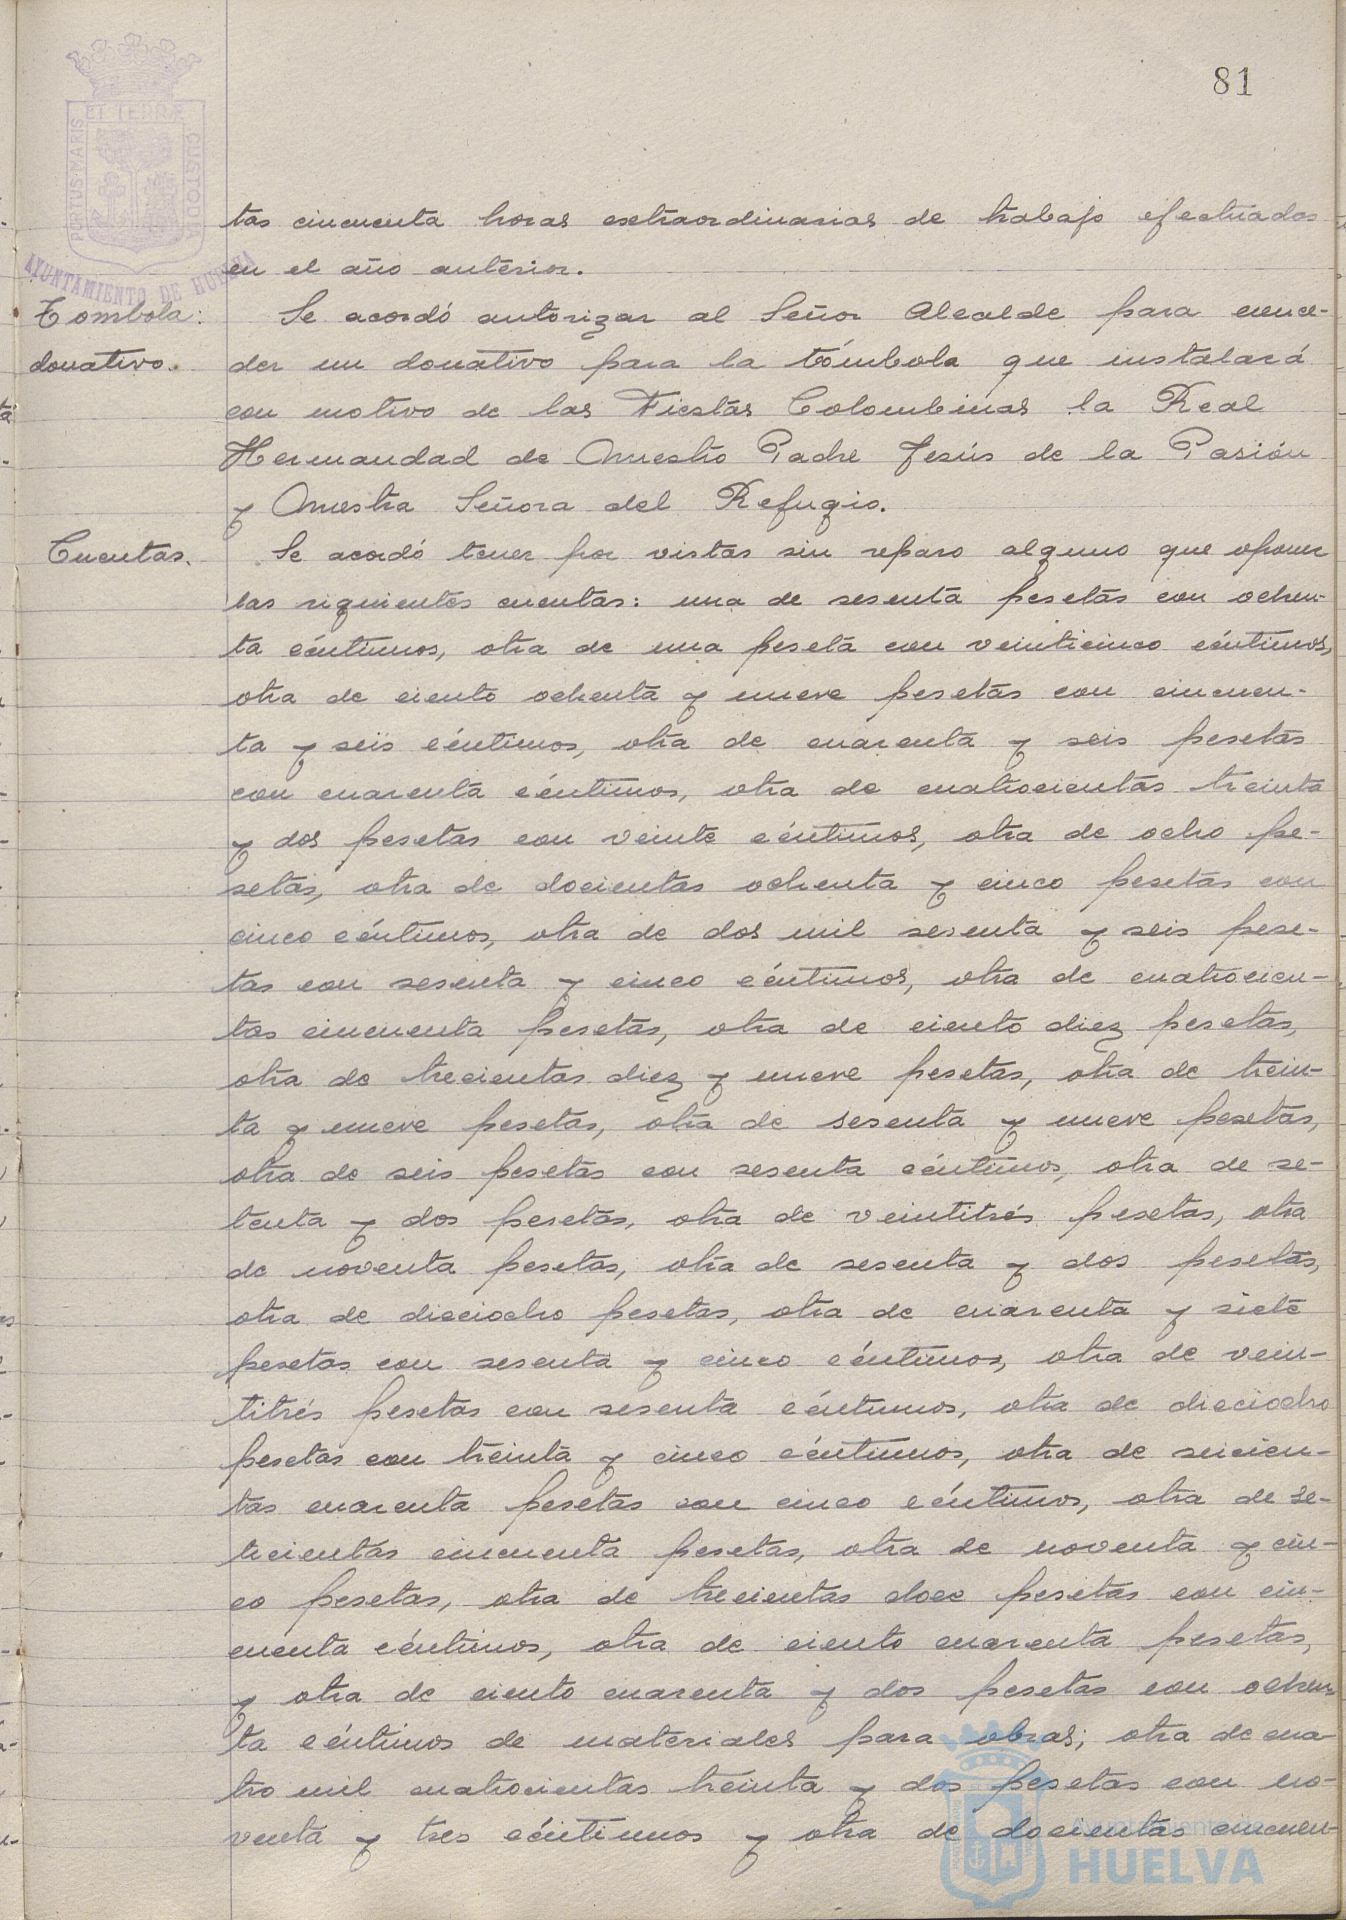 81
PORTUS MARIS ET TERRÆ CUSTODIA
AYUNTAMIENTO DE HUELVA
tas cincuenta horas extraordinarias de trabajo efectuadas
en el año anterior.
Tombola: Se acordó autorizar al Señor Alcalde para conce-
donativo. der un donativo para la tómbola que instalará
con motivo de las Fiestas Colombinas la Real
Hermandad de Nuestro Padre Jesús de la Pasión
y Nuestra Señora del Refugio.
Cuentas. Se acordó tener por vistas sin reparo alguno que oponer
las siguientes cuentas: una de sesenta pesetas con ochen-
ta céntimos, otra de una peseta con veinticinco céntimos,
otra de ciento ochenta y nueve pesetas con cincuen-
ta y seis céntimos, otra de cuarenta y seis pesetas
con cuarenta céntimos, otra de cuatrocientas treinta
y dos pesetas con veinte céntimos, otra de ocho pe-
setas, otra de docientas ochenta y cinco pesetas con
cinco céntimos, otra de dos mil sesenta y seis pese-
tas con sesenta y cinco céntimos, otra de cuatrocien-
tas cincuenta pesetas, otra de ciento diez pesetas,
otra de trecientas diez y nueve pesetas, otra de trein-
ta y nueve pesetas, otra de sesenta y nueve pesetas,
otra de seis pesetas con sesenta céntimos, otra de se-
tenta y dos pesetas, otra de veintitrés pesetas, otra
de noventa pesetas, otra de sesenta y dos pesetas,
otra de dieciocho pesetas, otra de cuarenta y siete
pesetas con sesenta y cinco céntimos, otra de vein-
titrés pesetas con sesenta céntimos, otra de dieciocho
pesetas con treinta y cinco céntimos, otra de seicien-
tas cuarenta pesetas con cinco céntimos, otra de se-
tecientas cincuenta pesetas, otra de noventa y cin-
co pesetas, otra de trecientas doce pesetas con cin-
cuenta céntimos, otra de ciento cuarenta pesetas,
y otra de ciento cuarenta y dos pesetas con ochen-
ta céntimos de materiales para obras; otra de cua-
tro mil cuatrocientas treinta y dos pesetas con no-
venta y tres céntimos y otra de docientas cincuen-
Ayuntamiento de
HUELVA